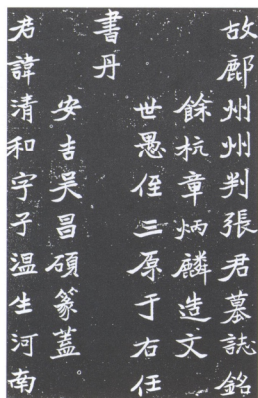 故鄜州州判張君墓誌銘
餘杭章炳麟造文
世愚侄三原于右任
書丹
安吉吴昌碩篆蓋。
君諱清和字子温生河南